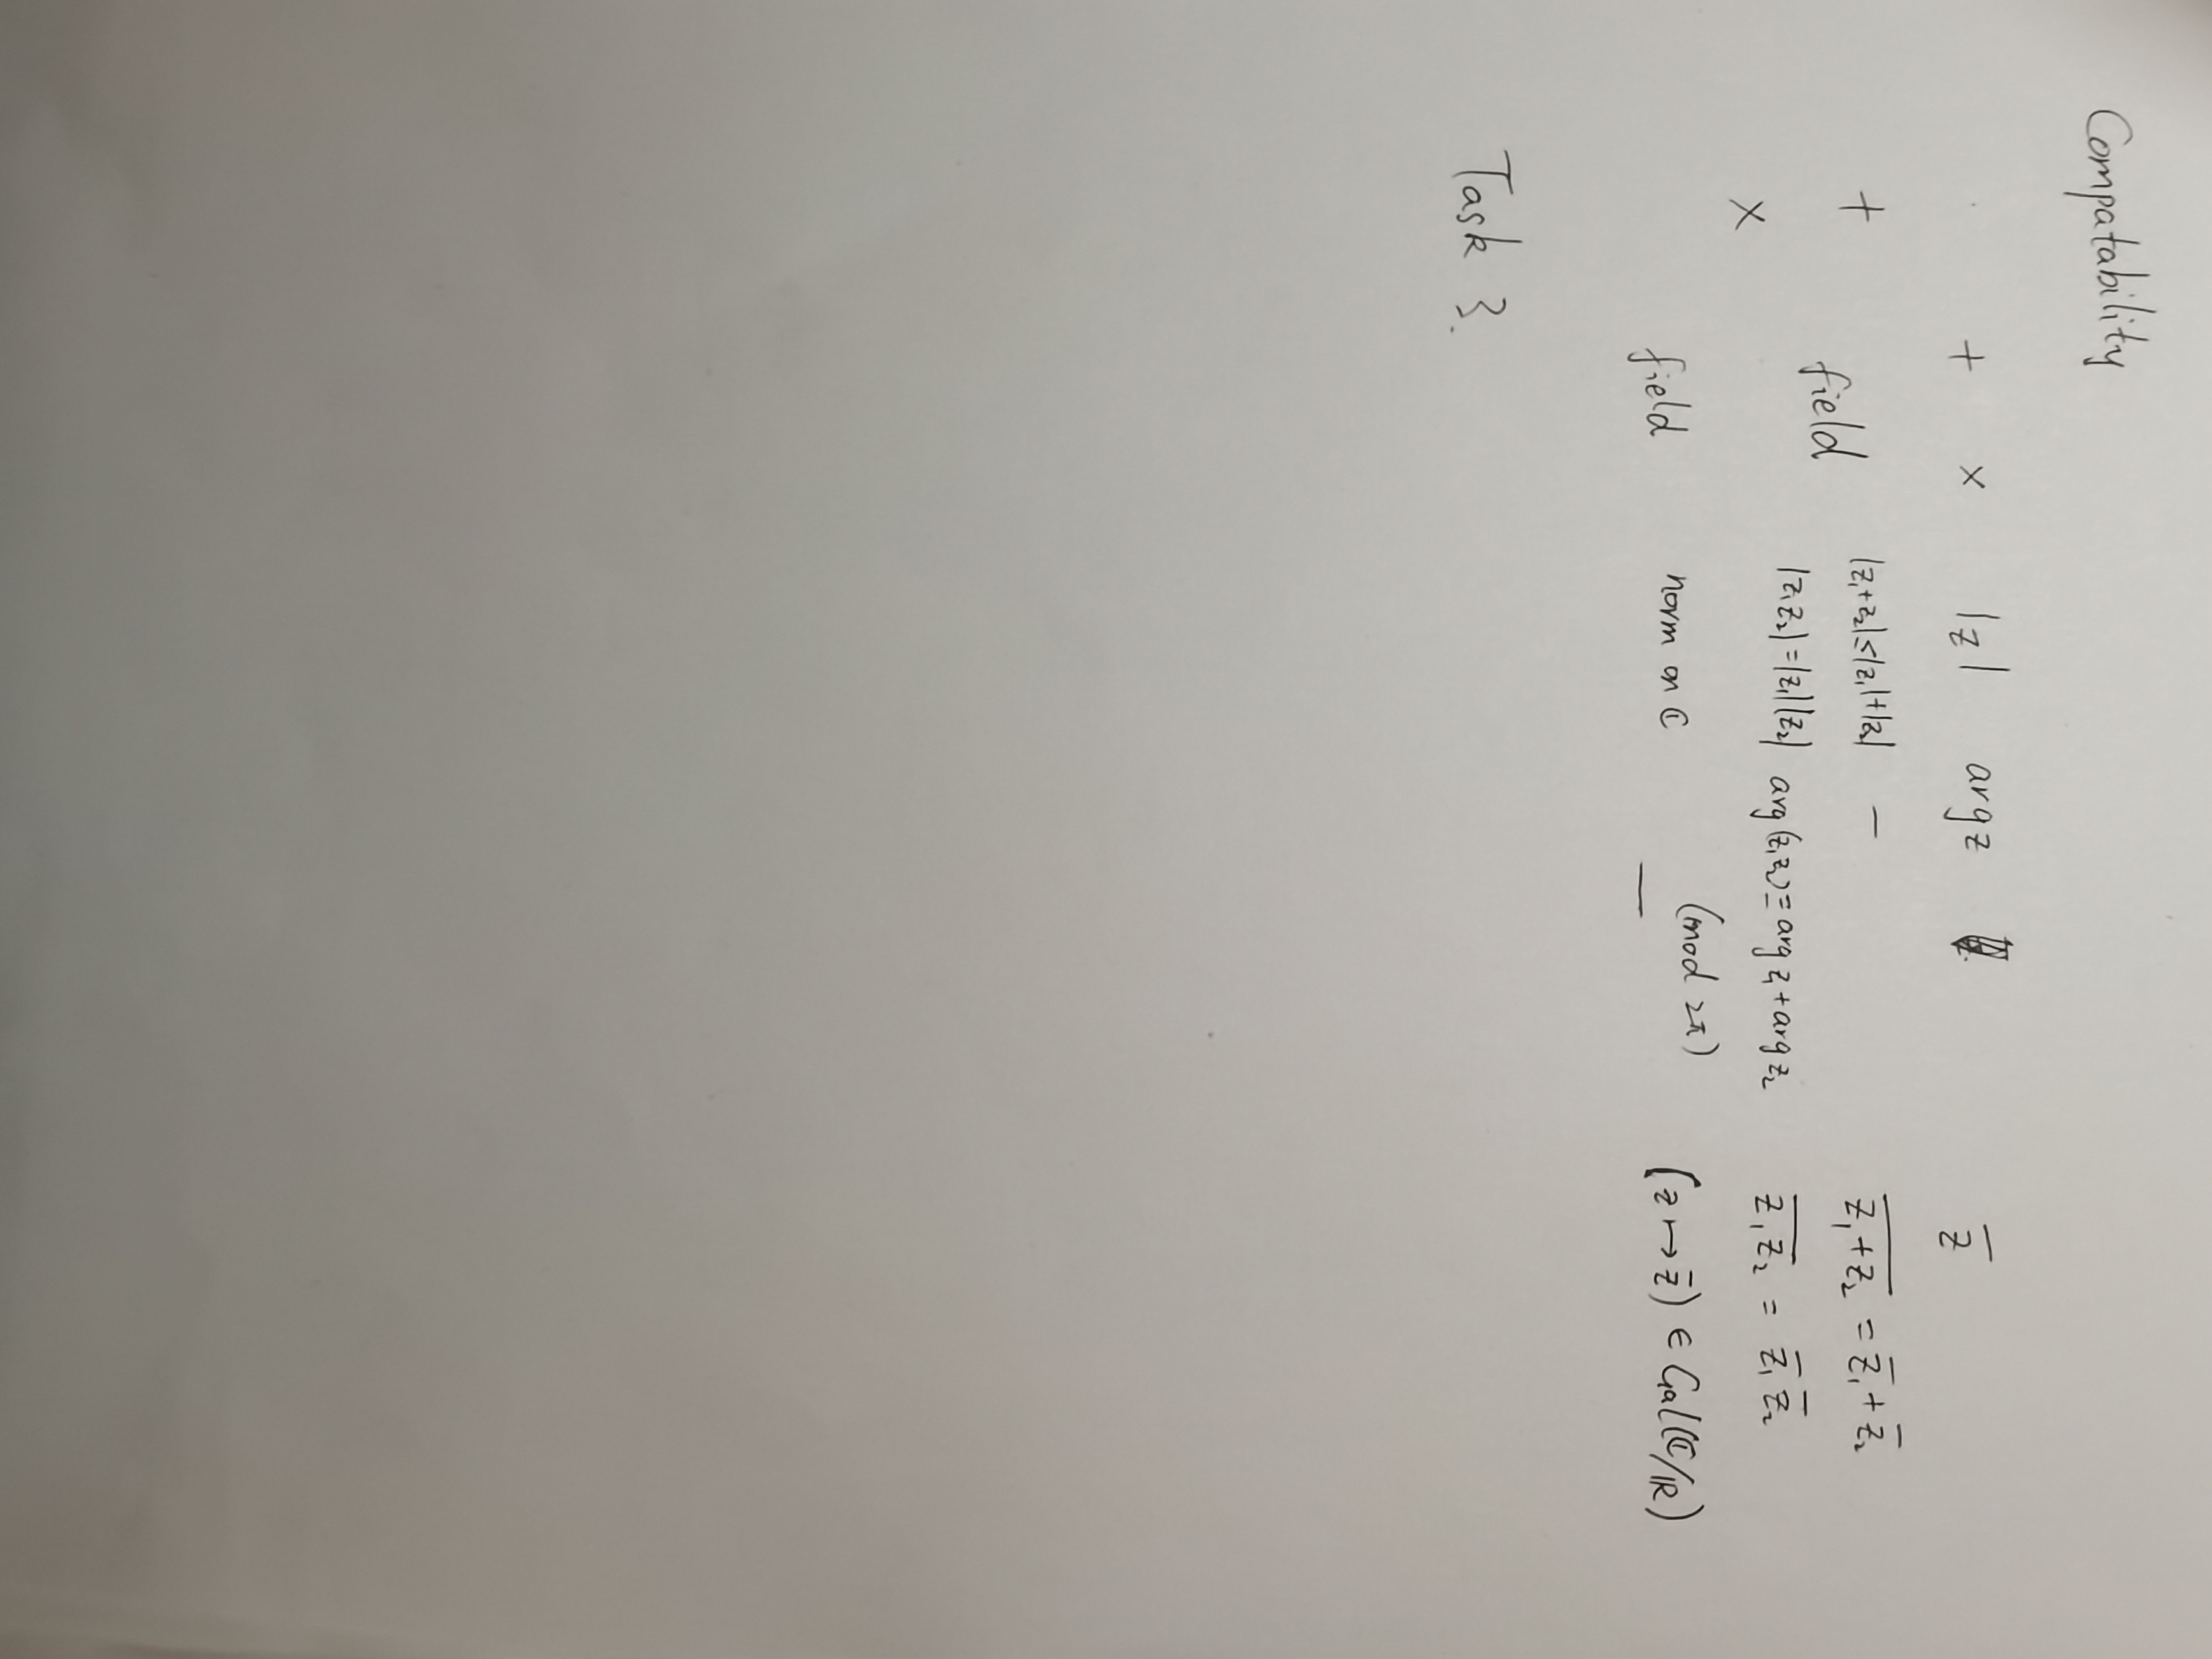 Compatability
+ × |z| arg z z̅
+ field |z₁+z₂|≤|z₁|+|z₂| — \overline{z₁+z₂} = z̅₁+z̅₂
× |z₁z₂|=|z₁||z₂| arg(z₁z₂)≡arg z₁+arg z₂ \overline{z₁z₂} = z̅₁ z̅₂
(mod 2π)
field norm on ℂ — (z↦z̅) ∈ Gal(ℂ/ℝ)
Task 3.